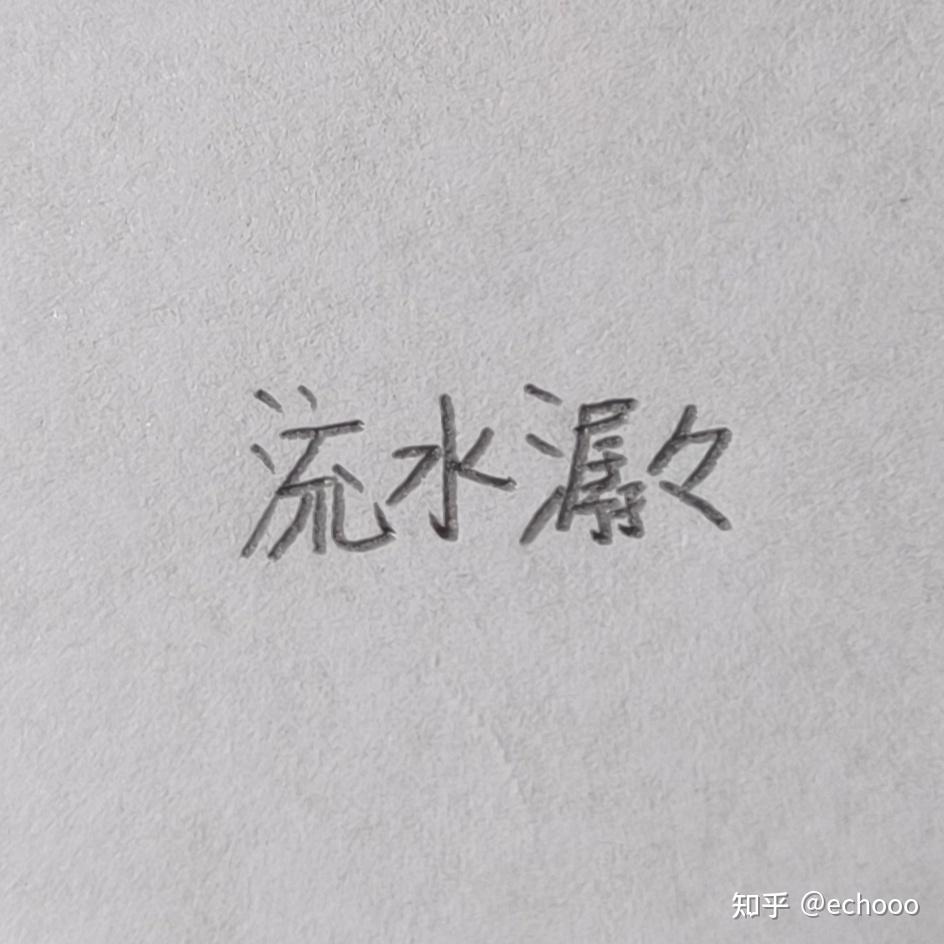 流水潺々
知乎 @echooo